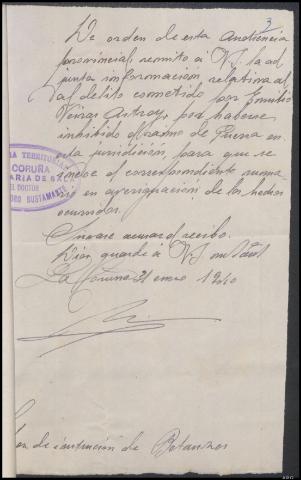 3
De orden de esta Audiencia
provincial, remito a V.I. la ad
junta información relativa al
delito cometido por
Astray, por haberse
inhibido el ramo de Guerra en
esta jurisdicción, para que se
el correspondiente suma
rio en averiguación de los hechos
ocurridos.
acusar el recibo.
Dios guarde a V.I. m. años
La Coruña 31 enero 1940
TERRITORIAL
CORUÑA
ARIA DE
DOCTOR
BUSTAMANTE
de instrucción de Betanzos